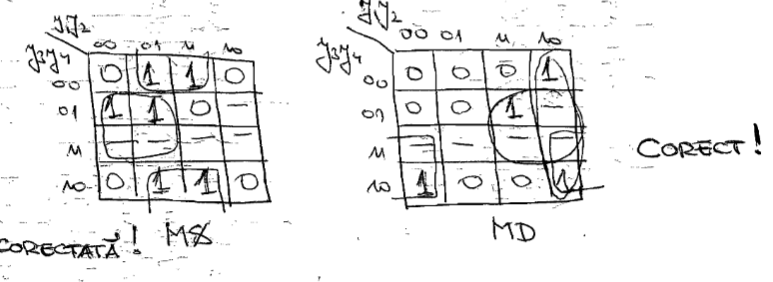 y₁y₂
y₃y₄ 00 01 11 10
00 0 1 1 0
01 1 1 0 –
11 – – – –
10 0 1 1 0
CORECTATĂ! MS
y₁y₂
y₃y₄ 00 01 11 10
00 0 0 0 1
01 0 0 1 –
11 – – – –
10 1 0 0 1
MD
CORECT!